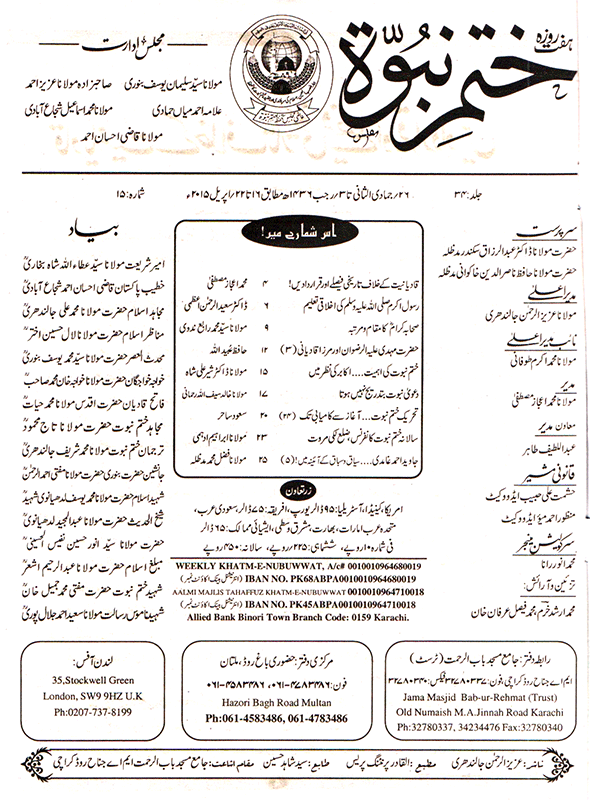 ہفت روزہ
ختم نبوۃ
مجلس ادارت
مولانا سید سلیمان یوسف بنوری صاحبزادہ مولانا عزیز احمد
علامہ احمد میاں حمادی مولانا محمد اسماعیل شجاع آبادی
مولانا قاضی احسان احمد
جلد: ۳۴ ۲۶؍ جمادی الثانی تا ۳؍ رجب ۱۴۳۶ھ مطابق ۱۶ تا ۲۲؍ اپریل ۲۰۱۵ء شمارہ: ۱۵
سرپرست
حضرت مولانا ڈاکٹر عبدالرزاق سکندر مدظلہ
حضرت مولانا حافظ ناصر الدین خاکوانی مدظلہ
مدیر اعلیٰ
مولانا عزیز الرحمٰن جالندھری
نائب مدیر اعلیٰ
مولانا محمد اکرم طوفانی
مدیر
مولانا محمد اعجاز مصطفیٰ
معاون مدیر
عبداللطیف طاہر
قانونی مشیر
حشمت علی حبیب ایڈووکیٹ
منظور احمد میؤ ایڈووکیٹ
سرکولیشن منیجر
محمد انور رانا
تزئین و آرائش:
محمد ارشد خرم، محمد فیصل عرفان خان
اس شمارے میں!
قادیانیت کے خلاف تاریخی فیصلے اور قراردادیں! ۴ محمد اعجاز مصطفیٰ
رسول اکرم صلی اللہ علیہ وسلم کی اخلاقی تعلیم ۶ ڈاکٹر سعید الرحمٰن اعظمی
صحابہ کرامؓ کا مقام و مرتبہ ۹ مولانا سید محمد رابع ندوی
حضرت مہدی علیہ الرضوان اور مرزا قادیانی (۳) ۱۲ حافظ عبیداللہ
ختم نبوت کی اہمیت.... اکابر کی نظر میں ۱۵ مولانا ڈاکٹر شیر علی شاہ
دعویٰ نبوت بتدریج نہیں ہوتا ۱۷ مولانا خالد سیف اللہ رحمانی
تحریک ختم نبوت... آغاز سے کامیابی تک (۲۴) ۲۰ سعود ساحر
سالانہ ختم نبوت کانفرنس، ضلع لکی مروت ۲۳ مولانا ابراہیم ادہمی
جاوید احمد غامدی... سیاق و سباق کے آئینہ میں! (۵) ۲۵ مولانا فضل محمد مدظلہ
زر تعاون
امریکا، کینیڈا، آسٹریلیا: ۹۵ ڈالر یورپ، افریقہ: ۷۵ ڈالر، سعودی عرب،
متحدہ عرب امارات، بھارت، مشرق وسطیٰ، ایشیائی ممالک: ۶۵ ڈالر
فی شمارہ ۱۰ روپے، ششماہی: ۲۲۵ روپے، سالانہ: ۴۵۰ روپے
WEEKLY KHATM-E-NUBUWWAT, A/c# 0010010964680019
IBAN NO. PK68ABPA0010010964680019 (انٹرنیشنل بینک اکاؤنٹ نمبر)
AALMI MAJLIS TAHAFFUZ KHATM-E-NUBUWWAT 0010010964710018
IBAN NO. PK45ABPA0010010964710018 (انٹرنیشنل بینک اکاؤنٹ نمبر)
Allied Bank Binori Town Branch Code: 0159 Karachi.
بیاد
امیر شریعت مولانا سید عطاء اللہ شاہ بخاریؒ
خطیب پاکستان قاضی احسان احمد شجاع آبادیؒ
مجاہد اسلام حضرت مولانا محمد علی جالندھریؒ
مناظر اسلام حضرت مولانا لال حسین اخترؒ
محدث العصر حضرت مولانا سید محمد یوسف بنوریؒ
خواجہ خواجگان حضرت مولانا خواجہ خان محمد صاحبؒ
فاتح قادیان حضرت اقدس مولانا محمد حیاتؒ
مجاہد ختم نبوت حضرت مولانا تاج محمودؒ
ترجمان ختم نبوت مولانا محمد شریف جالندھریؒ
جانشین حضرت بنوری حضرت مولانا مفتی احمد الرحمٰنؒ
شہید اسلام حضرت مولانا محمد یوسف لدھیانوی شہیدؒ
شیخ الحدیث حضرت مولانا عبدالمجید لدھیانویؒ
حضرت مولانا سید انور حسین نفیس الحسینیؒ
مبلغ اسلام حضرت مولانا عبدالرحیم اشعرؒ
شہید ختم نبوت حضرت مفتی محمد جمیل خانؒ
شہید ناموس رسالت مولانا سعید احمد جلال پوریؒ
رابطہ دفتر: جامع مسجد باب الرحمت (ٹرسٹ)
ایم اے جناح روڈ کراچی، فون: ۳۲۷۸۰۳۳۷ فیکس: ۳۲۷۸۰۳۴۰
Jama Masjid Bab-ur-Rehmat (Trust)
Old Numaish M.A.Jinnah Road Karachi
Ph: 32780337, 34234476 Fax:32780340
مرکزی دفتر: حضوری باغ روڈ، ملتان
فون: ۰۶۱-۴۷۸۳۴۸۶، ۰۶۱-۴۵۸۳۴۸۶
Hazori Bagh Road Multan
Ph:061-4583486, 061-4783486
لندن آفس:
35,Stockwell Green
London, SW9 9HZ U.K
Ph:0207-737-8199
ناشر: عزیز الرحمٰن جالندھری مطبع: القادر پرنٹنگ پریس طابع: سید شاہد حسین مقام اشاعت: جامع مسجد باب الرحمت ایم اے جناح روڈ کراچی